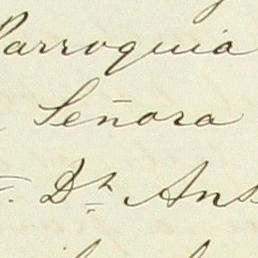 Parroquia
Señora
Dn Ans